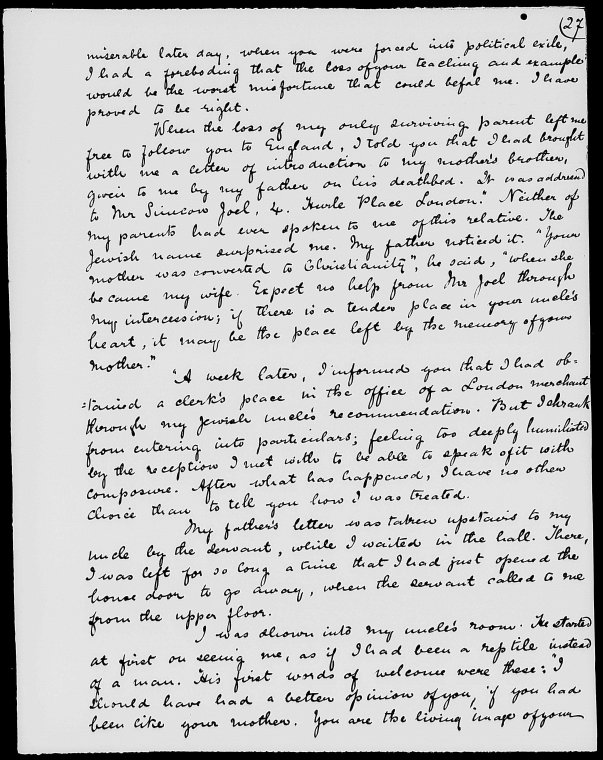 27
miserable later day, when you were forced into political exile,
I had a foreboding that the loss of your teaching and example
would be the worst misfortune that could befal me. I have
proved to be right.
When the loss of my only surviving parent left me
free to follow you to England, I told you that I had brought
with me a letter of introduction to my mother's brother,
given to me by my father on his deathbed. It was addressed
to "Mr Simeon Joel, 4. Hurle Place London." Neither of
my parents had ever spoken to me of this relative. The
Jewish name surprised me. My father noticed it. "Your
mother was converted to Christianity", he said, "when she
became my wife. Expect no help from Mr Joel through
my intercession; if there is a tender place in your uncle's
heart, it may be the place left by the memory of your
mother."
"A week later, I informed you that I had ob=
=tained a clerk's place in the office of a London merchant
through my Jewish uncle's recommendation. But I shrank
from entering into particulars; feeling too deeply humiliated
by the reception I met with to be able to speak of it with
composure. After what has happened, I have no other
choice than to tell you how I was treated.
My father's letter was taken upstairs to my
uncle by the servant, while I waited in the hall. There,
I was left for so long a time that I had just opened the
house door to go away, when the servant called to me
from the upper floor.
I was shown into my uncle's room. He started
at first on seeing me, as if I had been a reptile instead
of a man. His first words of welcome were these: "I
should have had a better opinion of you, if you had
been like your mother. You are the living image of your